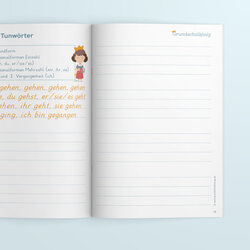 Tunwörter
ndform
sonalformen Einzahl)
du, er/sie/es)
sonalformen Mehrzahl) (wir, ihr, sie)
und 2. Vergangenheit (ich)
gehen, gehen, gehen, gehen
e, du gehst, er/sie/es geht
ehen, ihr geht, sie gehen
ging, ich bin gegangen
Grundschulkönig